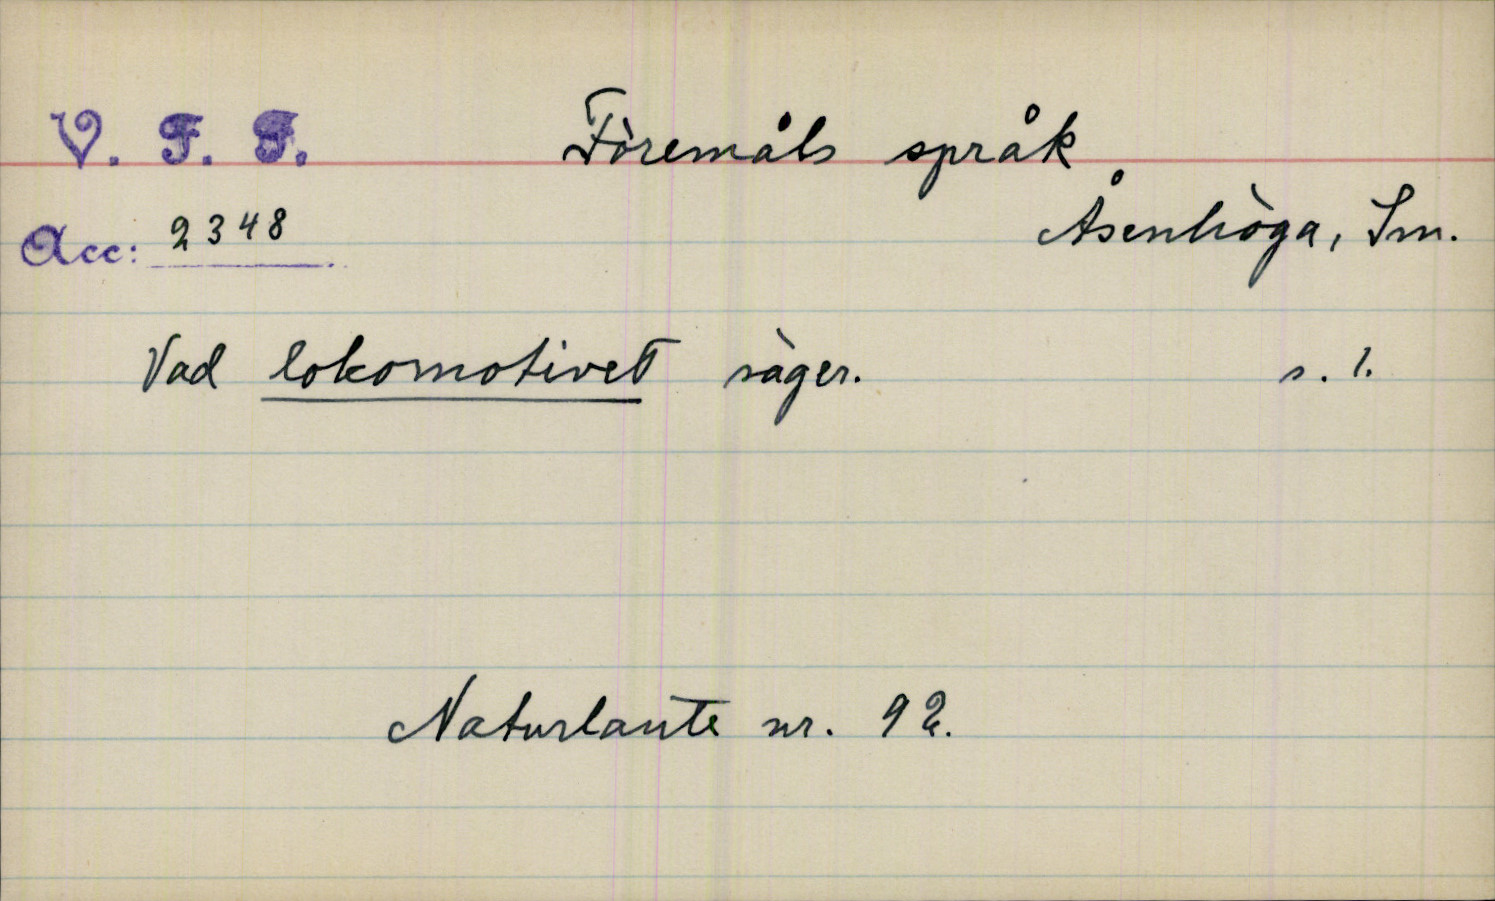 V. F. F.
Föremåls språk
Åsenhöga, Sm.
Acc: 2348
Vad lokomotivet säger. s. 1.
Naturlaute nr. 92.